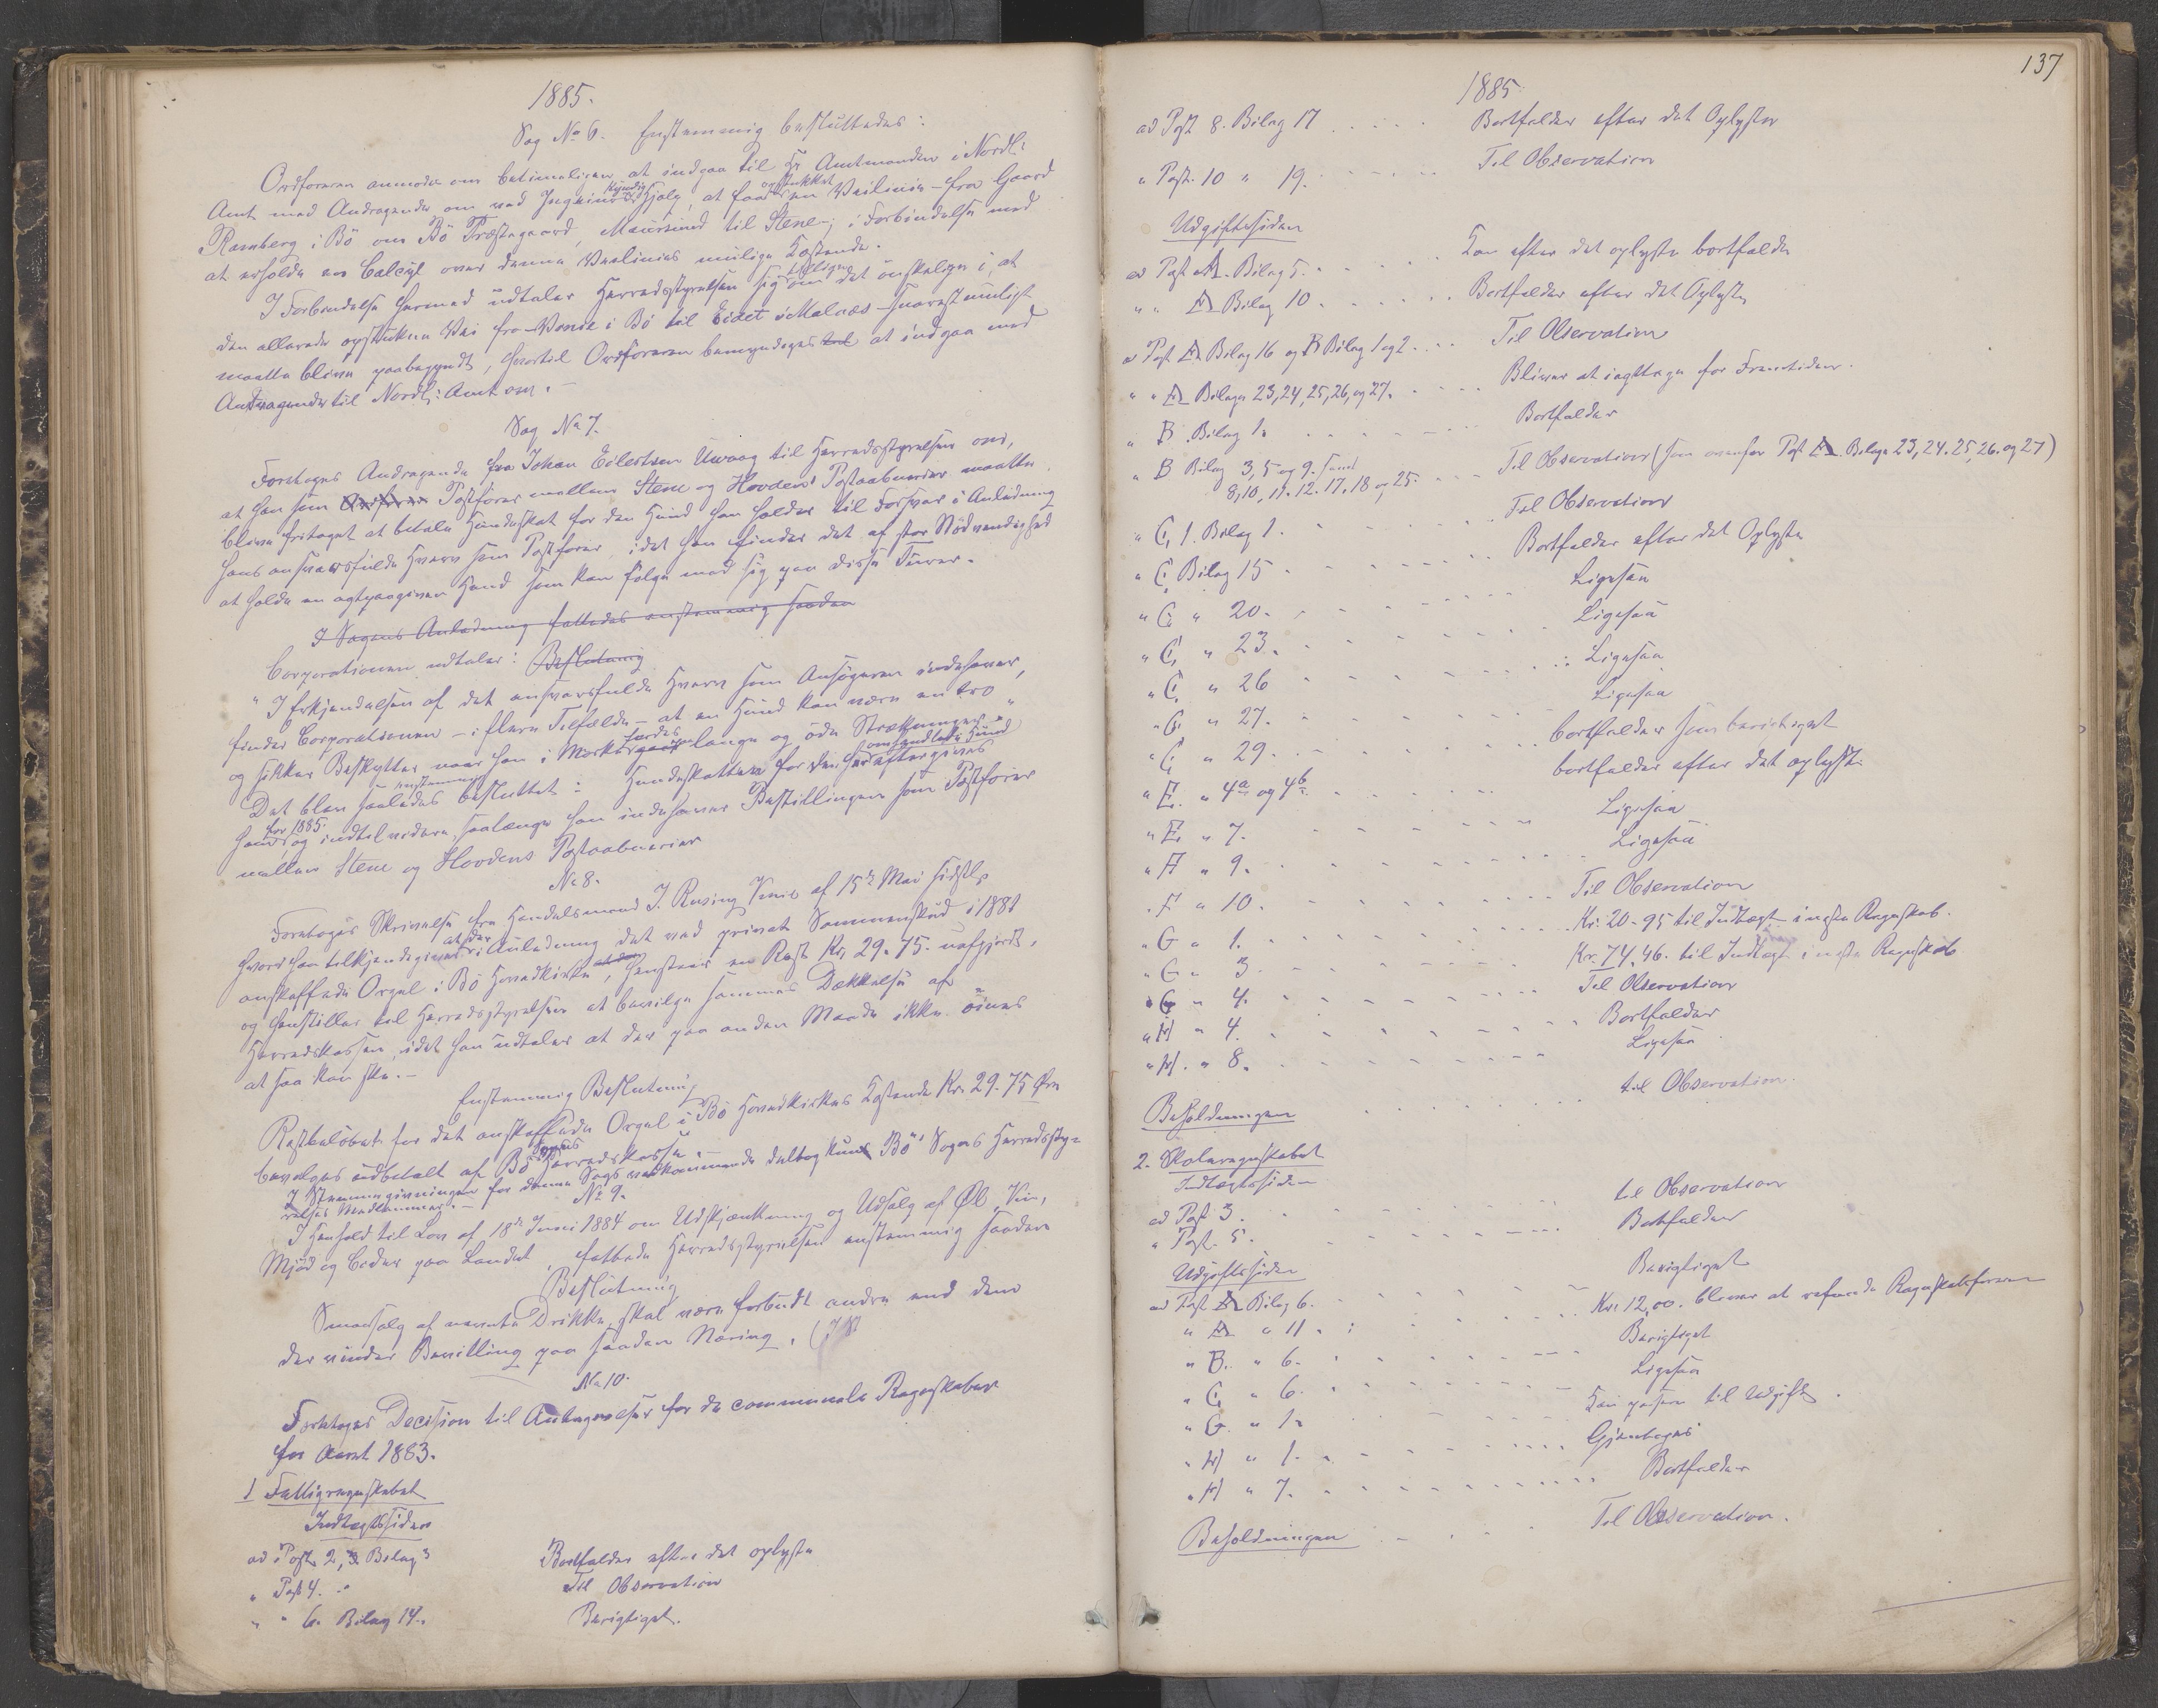 1885.
Sag No 6. Enstemmig besluttedes:
Ordføreren anmodes om betimeligen at indgaa til Hr Amtmanden i Nordl:
Amt med Andragende om ved Ingeniør kyndig Hjælp, at faa opstukket en Veilinie - fra Gaard
Ramberg i Bö om Bö Præstegaard, Maursund til Stene -; i Forbindelse med
at erholde en Calcyl over denne Veilinies mulige Kostende.
I Forbindelse hermed udtaler Herredsstyrelsen sig tillige om det önskelige i, at
den allerede opstukne Vei fra Vinie i Bö til Eidet i Malnæs - snarest muligt
maatte blive paabegyndt, hvortil Ordföreren bemyndiges til at indgaa med
Andragende til Nordl: Amt om. -
Sag No 7.
Foretoges Andragende fra Johan Edlertsen Uwaag til Herredsstyrelsen om,
at han som Postförer mellem Stene og Hovdens Postaabnerier maatte
blive fritaget at betale Hundeskat for den Hund han holder til Forsvar i Anledning
hans ansvarsfulde Hverv som Postförer, idet han finder det af stor Nödvendighed
at holde en agtpaagiven Hund som kan fölge med sig paa disse Turer.
I Sagens Anledning fattedes enstemmig saadan
Corporationen udtaler: Beslutning
"I Erkjendelsen af det ansvarsfulde Hverv som Ansögeren indehaver,
finder Corporationen - i flere Tilfælde - at en Hund kan være en tro
og sikker Beskytter naar han i Mörke færdes lange og öde Strækninger"
Det blev saaledes enstemmig besluttet: Hundeskatten for den omhandlede Hund eftergives
ham for 1885. og indtil videre, saalænge han indehaver Bestillingen som Postförer
mellem Stene og Hovdens Postaabnerier
No 8.
Foretoges Skrivelse fra Handelsmand J. Rusing Vinie af 15de Mai sidstl.
hvori han tilkjendegiver at der i Anledning det ved privat Sammenskud i 1881
anskaffede Orgel i Bö Hovedkirke, henstaar en Rest Kr. 29.75. uafgjordt,
og henstiller til Herredsstyrelsen at bevilge sammes Dækkelse af
Herredskassen, idet han udtaler at der paa anden Maade ikke öines
at saa kan ske. -
Enstemmig Beslutning
Restbelöbet for det anskaffede Orgel i Bö Hovedkirkes Kostende Kr. 29.75 Øre
bevilges udbetalt af Bö Sogns Herredskasse. -
I Stemmegivningen for denne Sags vedkommende deltog kun Bö Sogns Herredssty-
relses Medlemmer. -
No 9.
I Henhold til Lov af 18de Juni 1884 om Udskjænkning og Udsalg af Øl Vin,
Mjöd og Ceder paa Landet, fattede Herredsstyrelsen enstemmig saadan
Beslutning
Smaasalg af nævnte Drikke, skal være forbudt andre end dem
der vinder Bevilling paa saadan Næring.
No 10.
Foretoges Decision til Antegnelser for de communale Regnskaber
for Aaret 1883.
1 Fattigregnskabet
Indtægtssiden
ad Post 2, 3. Bilag 3 Bortfalder efter det oplyste
" Post 4. Til Observation
" " 6. Bilag 14. Berigtiget.
137
1885
ad Post 8. Bilag 17 Bortfalder efter det Oplyste
" Post. 10 " 19. Til Observation
Udgiftssiden
ad Post A. Bilag 5. Kan efter det oplyste bortfalde
" " A Bilag 10. Bortfalder efter det Oplyste
ad Post A Bilag 16 og B Bilag 1 og 2. Til Observation
" " A Bilage 23, 24, 25, 26, og 27. Bliver at iagttage for Fremtiden.
" B. Bilag 1. Bortfalder
" B Bilag 3, 5 og 9. samt
8, 10, 11. 12. 17. 18 og 25. Til Observation (som ovenfor Post A. Bilage 23, 24. 25, 26. og 27)
" C, 1. Bilag 1. Til Observation
" C Bilag 15 Bortfalder efter det Oplyste
" C " 20. Ligesaa
" C, " 23. Ligesaa
" C, " 26 Ligesaa
" C. " 27. Ligesaa
" C, " 29. bortfalder som berigtiget
" E. " 4a og 4b. bortfalder efter det oplyste.
" E. " 7. Ligesaa
" F " 9. Ligesaa
" F " 10. Til Observation
" G " 1. Kr. 20-95 til Indtægt i næste Regnskab.
" G " 3 Kr. 74,46. til Indtægt i næste Regnskab
" G " 4. Til Observation
" H " 4. Bortfalder
" H. " 8. Ligesaa
Beholdningen til Observation.
2. Skoleregnskabet
Indtægtssiden
ad Post 3. til Observation
" Post. 5. Bortfalder
Udgiftssiden
ad Post A Bilag 6. Berigtiget
" A " 11. Kr. 12,00. bliver at refundere Regnskabsføreren
" B. " 6. Berigtiget
" C, " 6. Ligesaa
" G " 1. Kan passere til Udgift.
" H " 1. Gjentages
" H " 7. Bortfalder
Beholdningen Til Observation.